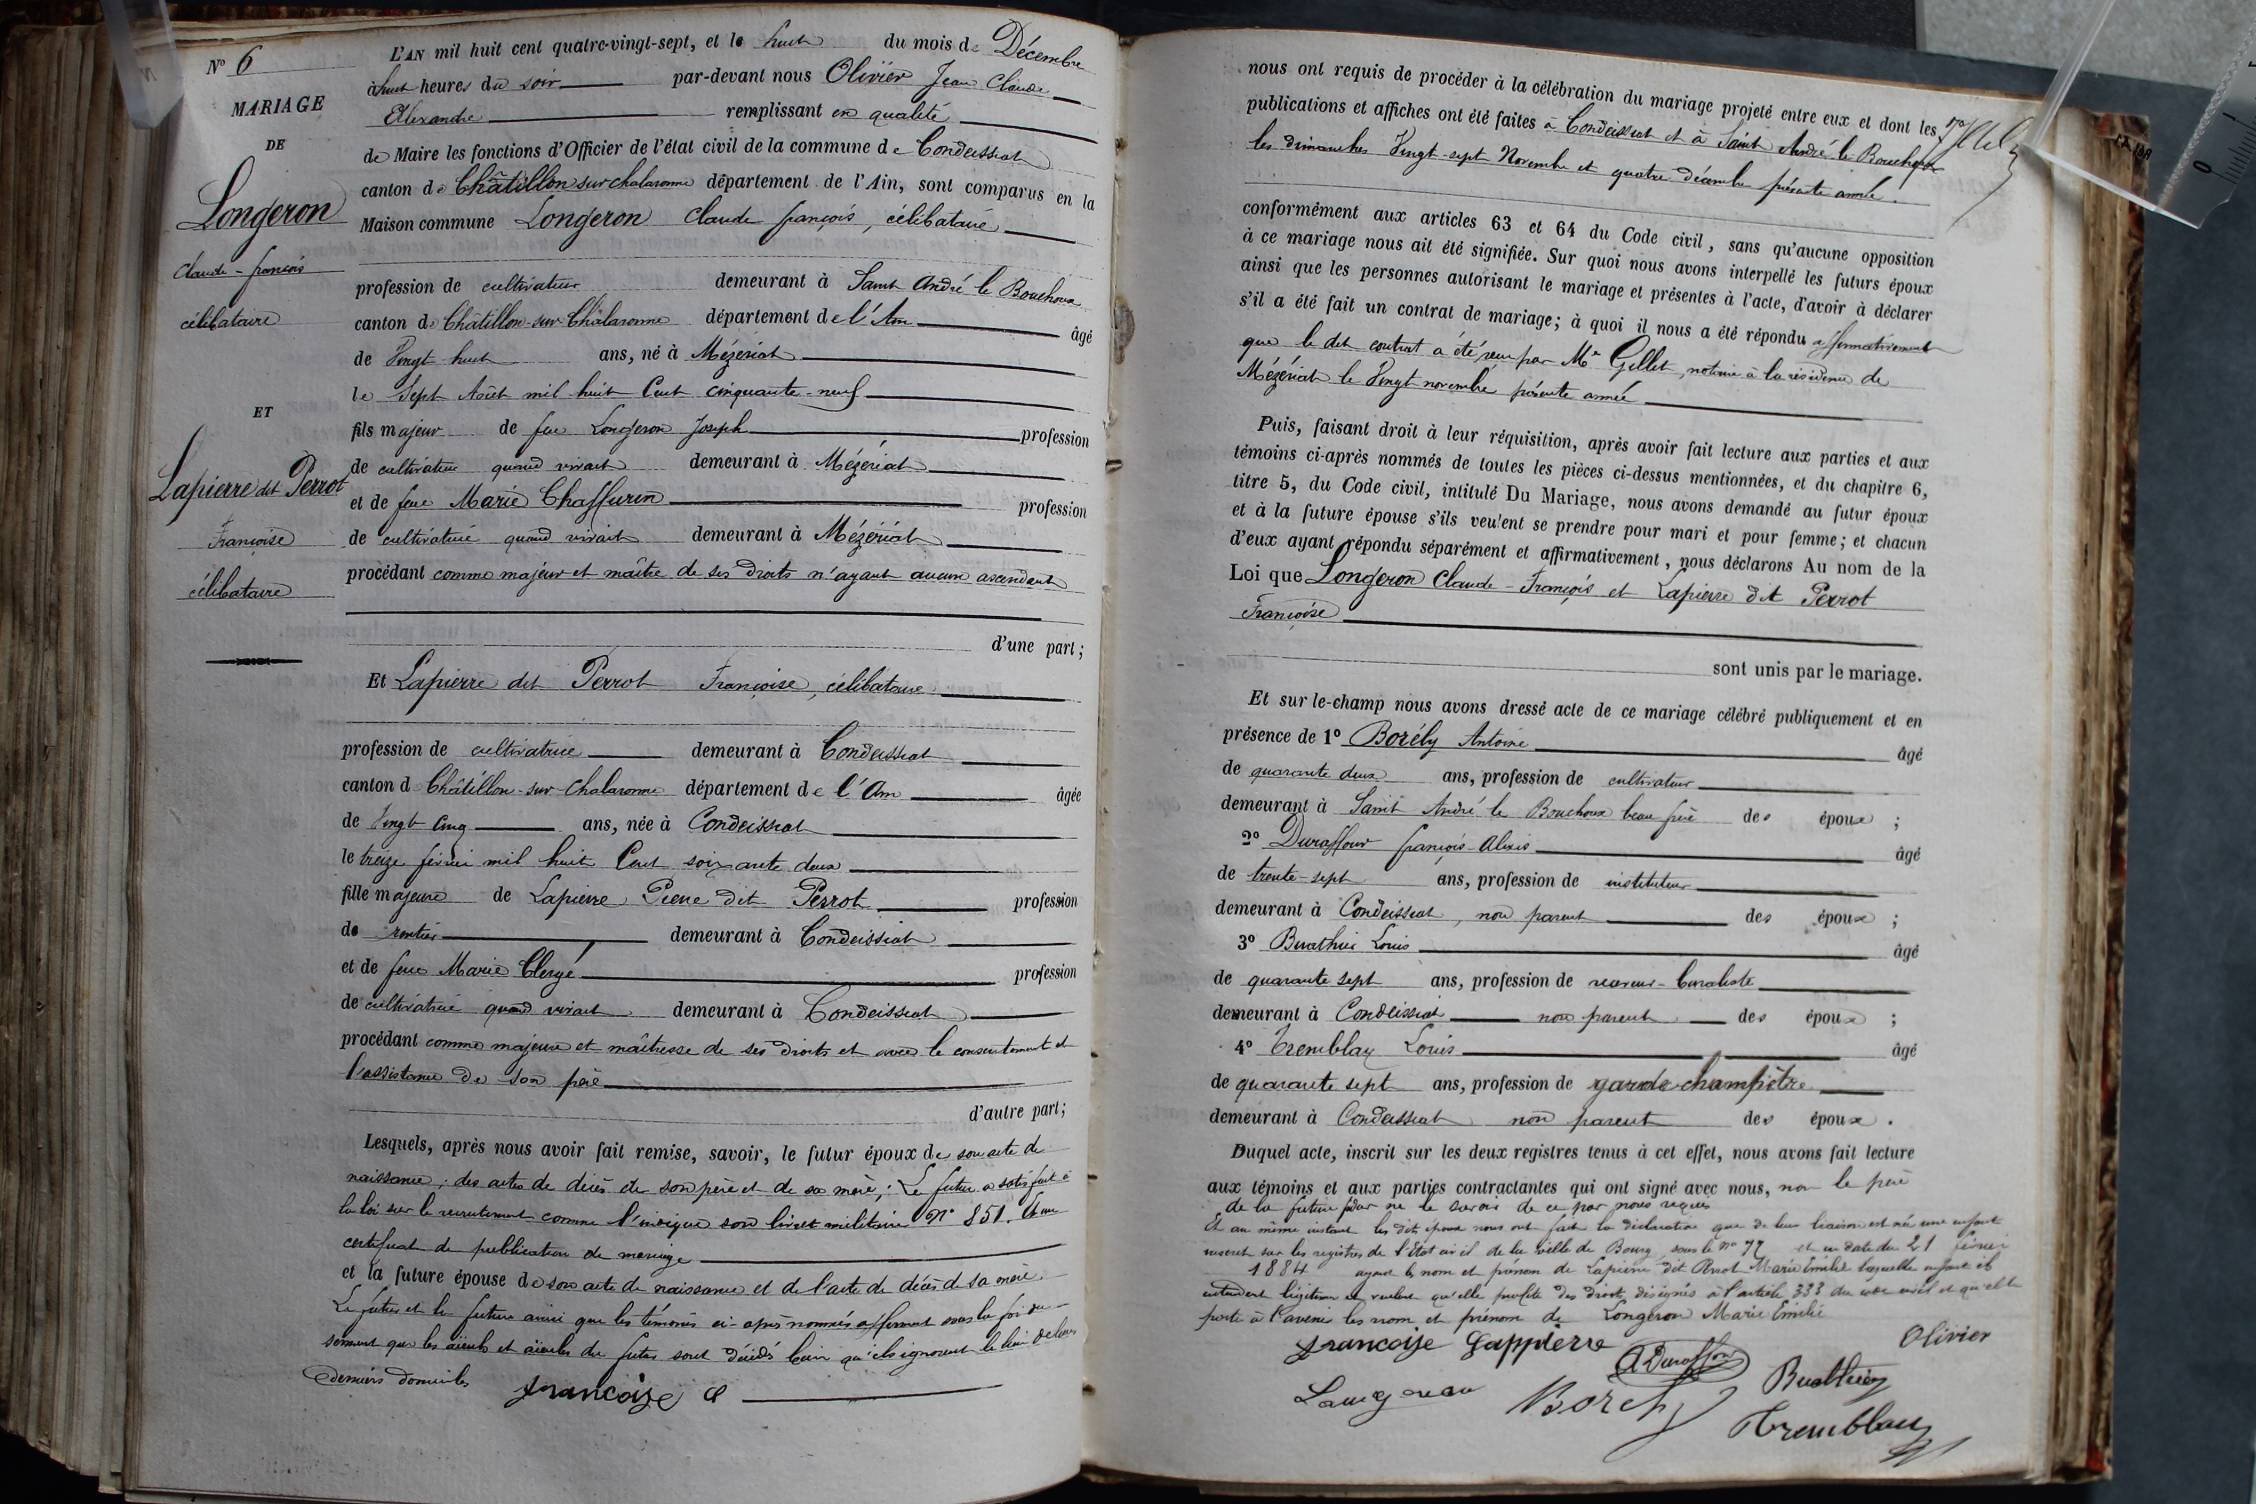 N° 6
MARIAGE
DE
Longeron
Claude-françois
célibataire
ET
Lapierre dit Perrot
Françoise
célibataire
L'AN mil huit cent quatre-vingt-sept, et le huit du mois de Décembre
à huit heures du soir par-devant nous Olivier Jean Claude
Alexandre remplissant en qualité
de Maire les fonctions d'Officier de l'état civil de la commune de Condeissiat
canton de Châtillon sur chalaronne département de l'Ain, sont comparus en la
Maison commune Longeron Claude françois, célibataire
profession de cultivateur demeurant à Saint André le Bouchoux
canton de Châtillon-sur-Chalaronne département de l'Ain âgé
de Vingt huit ans, né à Mézériat
le Sept Août mil huit Cent cinquante-neuf
fils majeur de feu Longeron Joseph profession
de cultivateur quand vivait demeurant à Mézériat
et de feue Marie Chaffurin profession
de cultivatrice quand vivait demeurant à Mézériat
procédant comme majeur et maître de ses droits n'ayant aucun ascendant
d'une part;
Et Lapierre dit Perrot Françoise, célibataire
profession de cultivatrice demeurant à Condeissiat
canton d Châtillon-sur-Chalaronne département de l'Ain âgée
de Vingt Cinq ans, née à Condeissiat
le treize février mil huit Cent soixante deux
fille majeure de Lapierre Pierre dit Perrot profession
de rentier demeurant à Condeissiat
et de feue Marie Clergé profession
de cultivatrice quand vivait demeurant à Condeissiat
procédant comme majeure et maîtresse de ses droits et avec le consentement et
l'assistance de son père
d'autre part;
Lesquels, après nous avoir fait remise, savoir, le futur époux de son acte de
naissance; des actes de décès de son père et de sa mère; Le futur a satisfait à
la loi sur le recrutement comme l'indique son livret militaire N° 851. Et un
certificat de publication de mariage
et la future épouse de son acte de naissance et de l'acte de décès de sa mère.
Le futur et la future ainsi que les témoins ci-après nommés affirment sous la foi du
serment que les aïeuls et aïeules du futur sont décédés bien qu'ils ignorent le lieu de leurs
derniers domiciles
francoise
nous ont requis de procéder à la célébration du mariage projeté entre eux et dont les
publications et affiches ont été faites à Condeissiat et à Saint André le Bouchoux
les dimanches Vingt-sept Novembre et quatre décembre présente année.
conformément aux articles 63 et 64 du Code civil, sans qu'aucune opposition
à ce mariage nous ait été signifiée. Sur quoi nous avons interpellé les futurs époux
ainsi que les personnes autorisant le mariage et présentes à l'acte, d'avoir à déclarer
s'il a été fait un contrat de mariage; à quoi il nous a été répondu affirmativement
que le dit contrat a été reçu par Me Gillet, notaire à la résidence de
Mézériat le Vingt novembre présente année
Puis, faisant droit à leur réquisition, après avoir fait lecture aux parties et aux
témoins ci-après nommés de toutes les pièces ci-dessus mentionnées, et du chapitre 6,
titre 5, du Code civil, intitulé Du Mariage, nous avons demandé au futur époux
et à la future épouse s'ils veulent se prendre pour mari et pour femme; et chacun
d'eux ayant répondu séparément et affirmativement, nous déclarons Au nom de la
Loi que Longeron Claude-François et Lapierre dit Perrot
Françoise
sont unis par le mariage.
Et sur-le-champ nous avons dressé acte de ce mariage célébré publiquement et en
présence de 1° Borély Antoine âgé
de quarante deux ans, profession de cultivateur
demeurant à Saint André le Bouchoux beau frère des époux ;
2° Duraffour françois-Alexis âgé
de trente-sept ans, profession de instituteur
demeurant à Condeissiat, non parent des époux ;
3° Buathier Louis âgé
de quarante sept ans, profession de receveur-buraliste
demeurant à Condeissiat non parent des époux ;
4° Tremblay Louis âgé
de quarante sept ans, profession de garde-champêtre
demeurant à Condeissiat non parent des époux .
Duquel acte, inscrit sur les deux registres tenus à cet effet, nous avons fait lecture
aux témoins et aux parties contractantes qui ont signé avec nous, non le père
de la future pour ne le savoir de ce par nous requis
Et au même instant les dits époux nous ont fait la déclaration que de leur liaison est née une enfant
inscrit sur les registres de l'Etat civil de la ville de Bourg sous le N° 77 et en date du 21 février
1884 ayant les nom et prénom de Lapierre dit Perrot Marie Emélie laquelle enfant ils
entendent légitimer et veulent qu'elle profite des droits désignés à l'article 333 du code civil et qu'elle
porte à l'avenir les nom et prénom de Longeron Marie Emélie
francoise Lappierre
Olivier
A Duraffour
Buathier
Borely
Tremblay